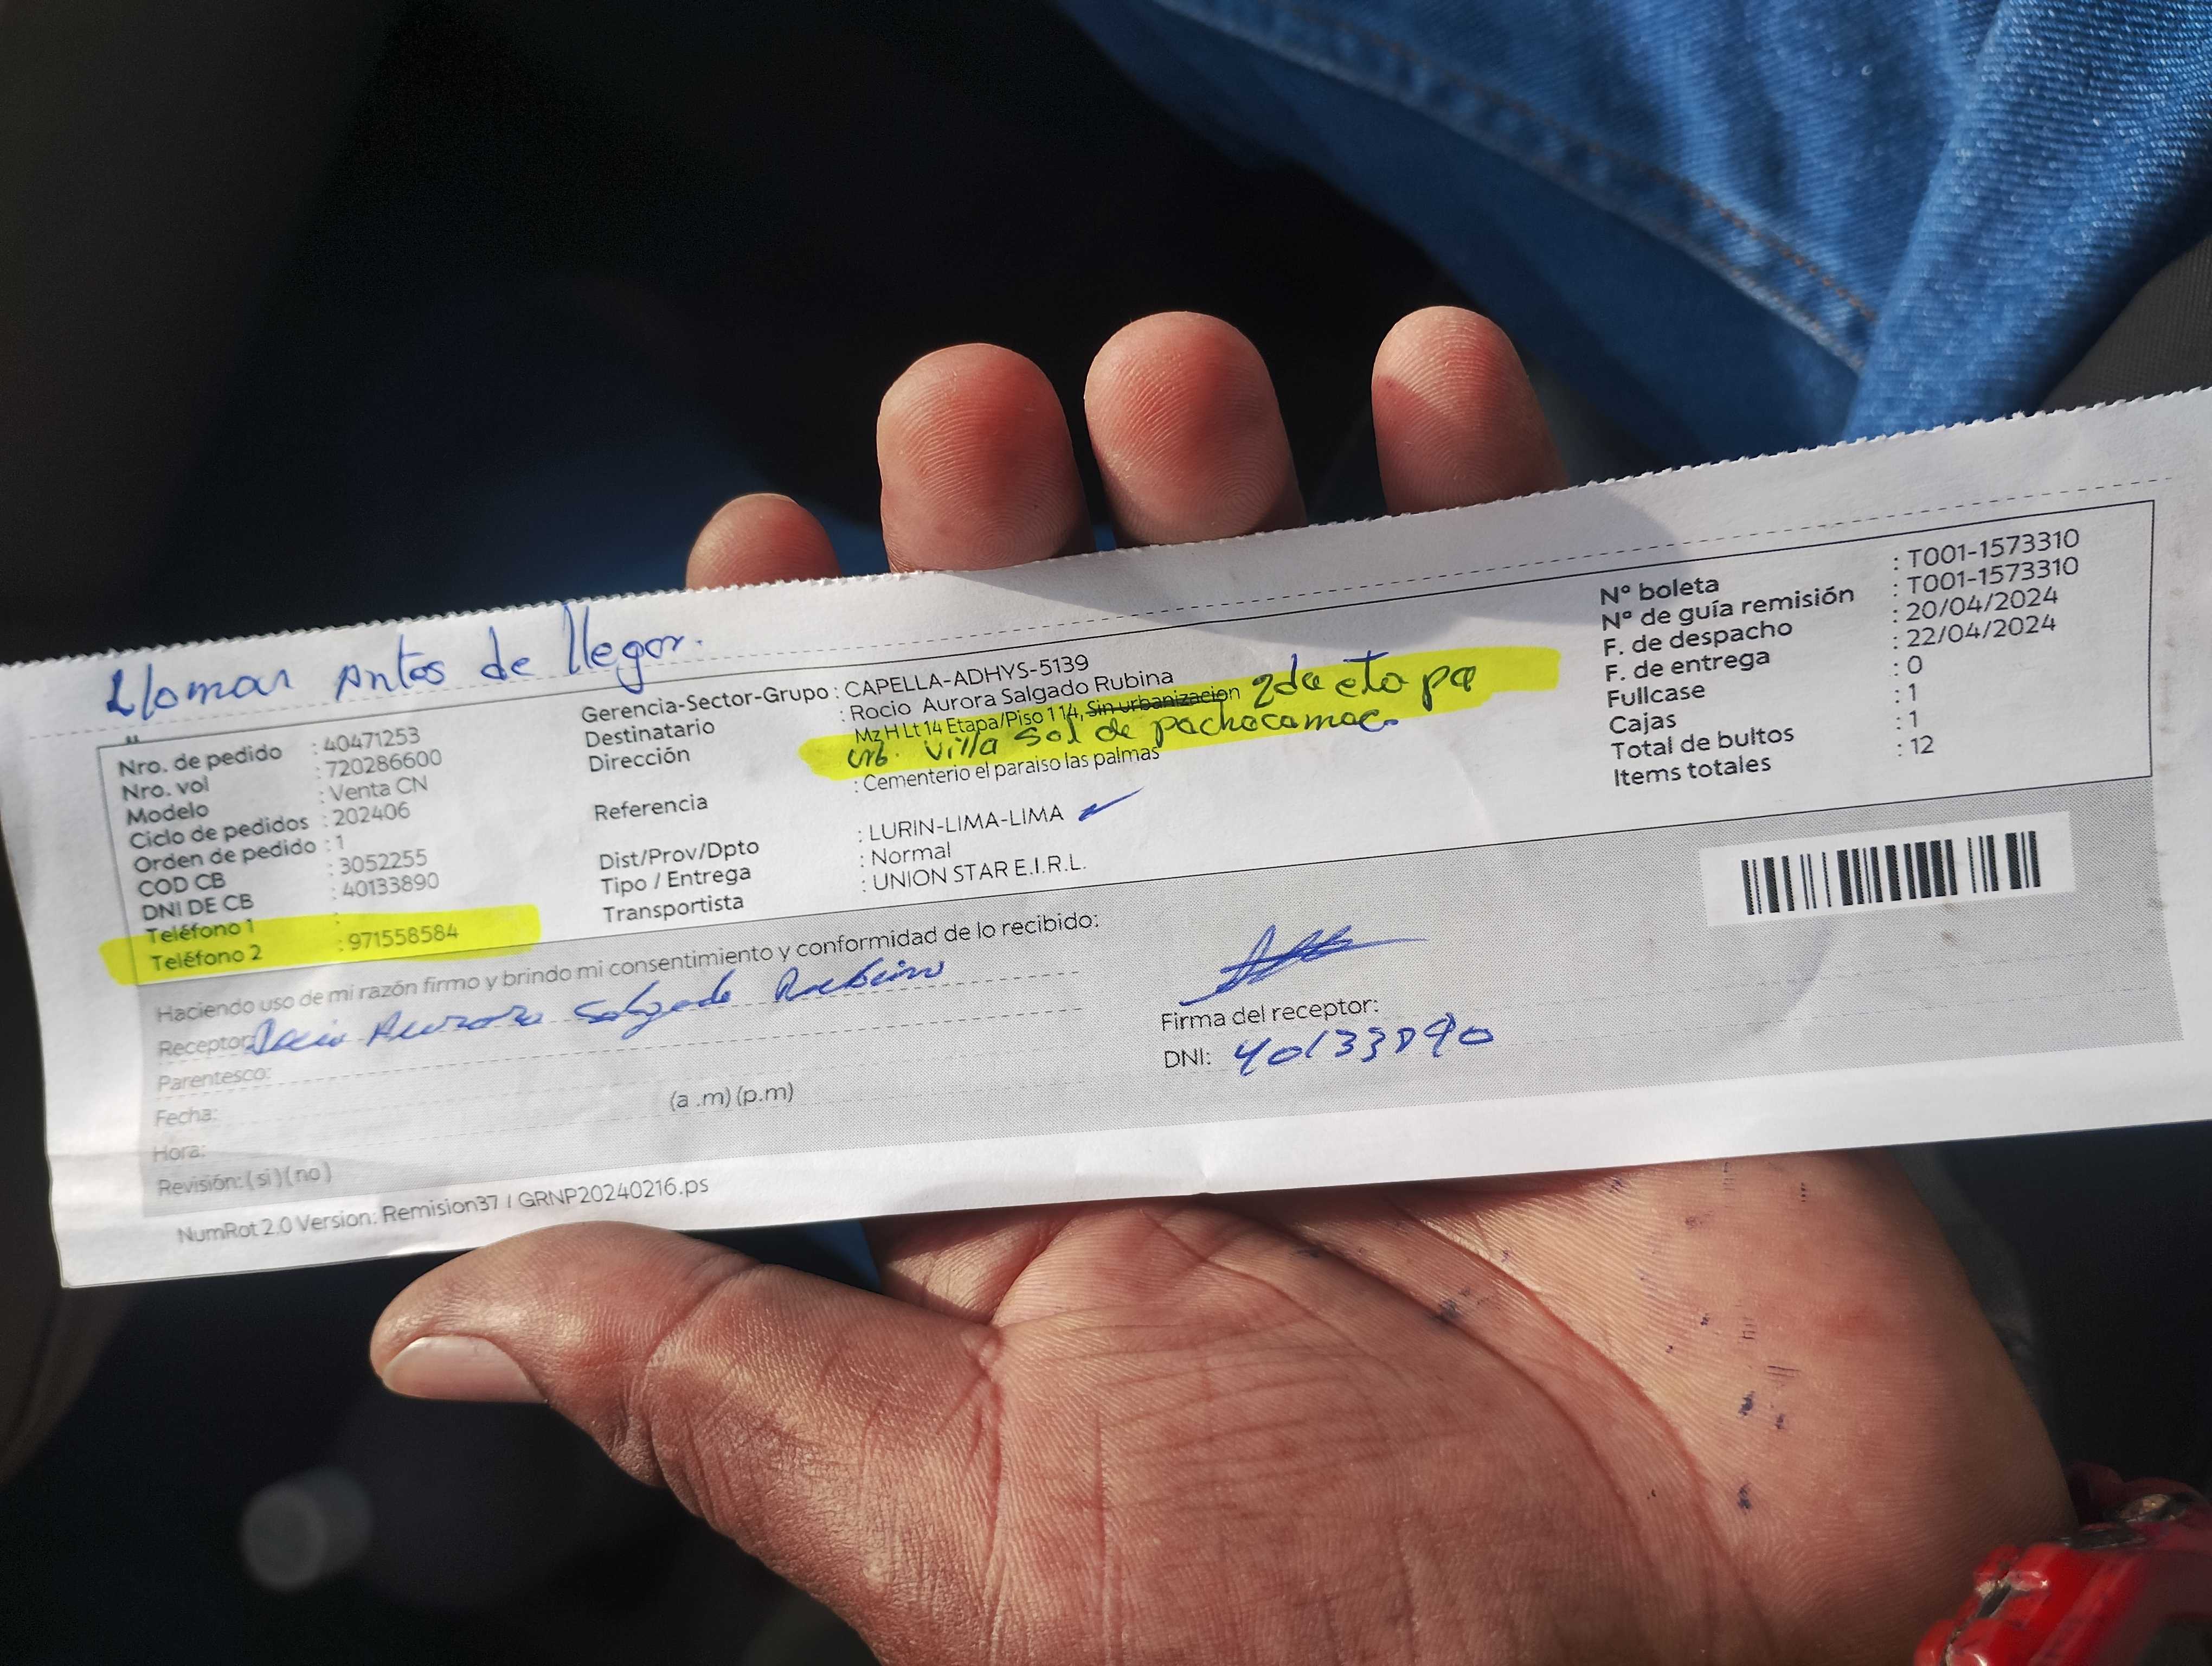 Llamar Antes de llegar.
Nro. de pedido : 40471253
Nro. vol : 720286600
Modelo : Venta CN
Ciclo de pedidos : 202406
Orden de pedido : 1
COD CB : 3052255
DNI DE CB : 40133890
Teléfono 1 :
Teléfono 2 : 971558584
Gerencia-Sector-Grupo : CAPELLA-ADHYS-5139
Destinatario : Rocio Aurora Salgado Rubina
Dirección : Mz H Lt 14 Etapa/Piso 1 14, Sin urbanizacion 2da etapa
urb. Villa Sol de pachacamac.
Referencia : Cementerio el paraiso las palmas
Dist/Prov/Dpto : LURIN-LIMA-LIMA
Tipo / Entrega : Normal
Transportista : UNION STAR E.I.R.L.
N° boleta : T001-1573310
N° de guía remisión : T001-1573310
F. de despacho : 20/04/2024
F. de entrega : 22/04/2024
Fullcase : 0
Cajas : 1
Total de bultos : 1
Items totales : 12
Haciendo uso de mi razón firmo y brindo mi consentimiento y conformidad de lo recibido:
Receptor: Rocio Aurora Salgado Rubina
Parentesco:
Fecha:
Hora: (a .m) (p.m)
Revisión: ( si ) ( no )
Firma del receptor:
DNI: 40133890
NumRot 2.0 Version: Remision37 / GRNP20240216.ps